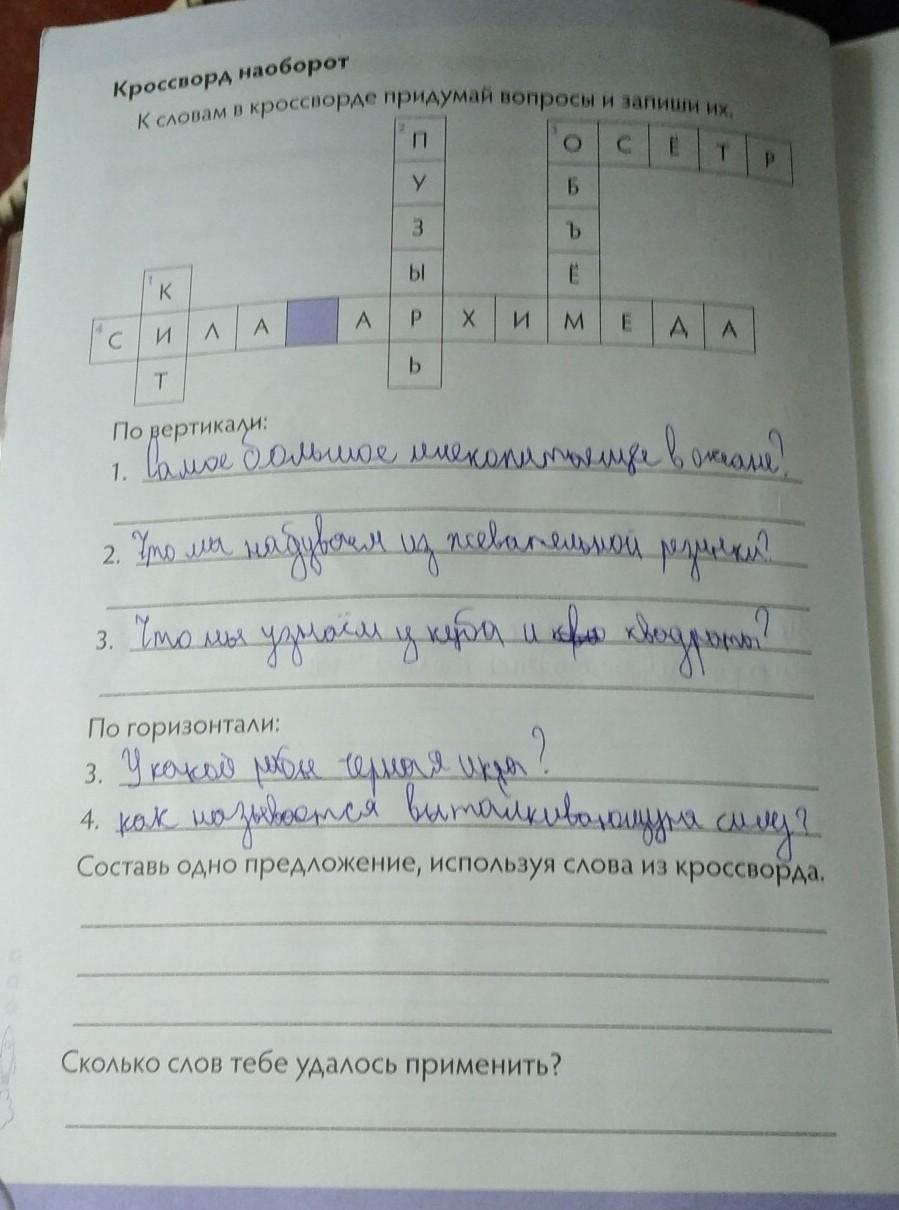 Кроссворд наоборот
К словам в кроссворде придумай вопросы и запиши их.
2 П
3 О С Ё Т Р
У Б
З Ъ
1 К Ы Ё
4 С И Л А А Р Х И М Е Д А
Т Ь
По вертикали:
1. Самое большое млекопитающее в океане?
2. Что мы надуваем из жевательной резинки?
3. Что мы узнаём у куба и квадрата?
По горизонтали:
3. У какой рыбы черная икра?
4. как называется выталкивающуюа силу?
Составь одно предложение, используя слова из кроссворда.
Сколько слов тебе удалось применить?